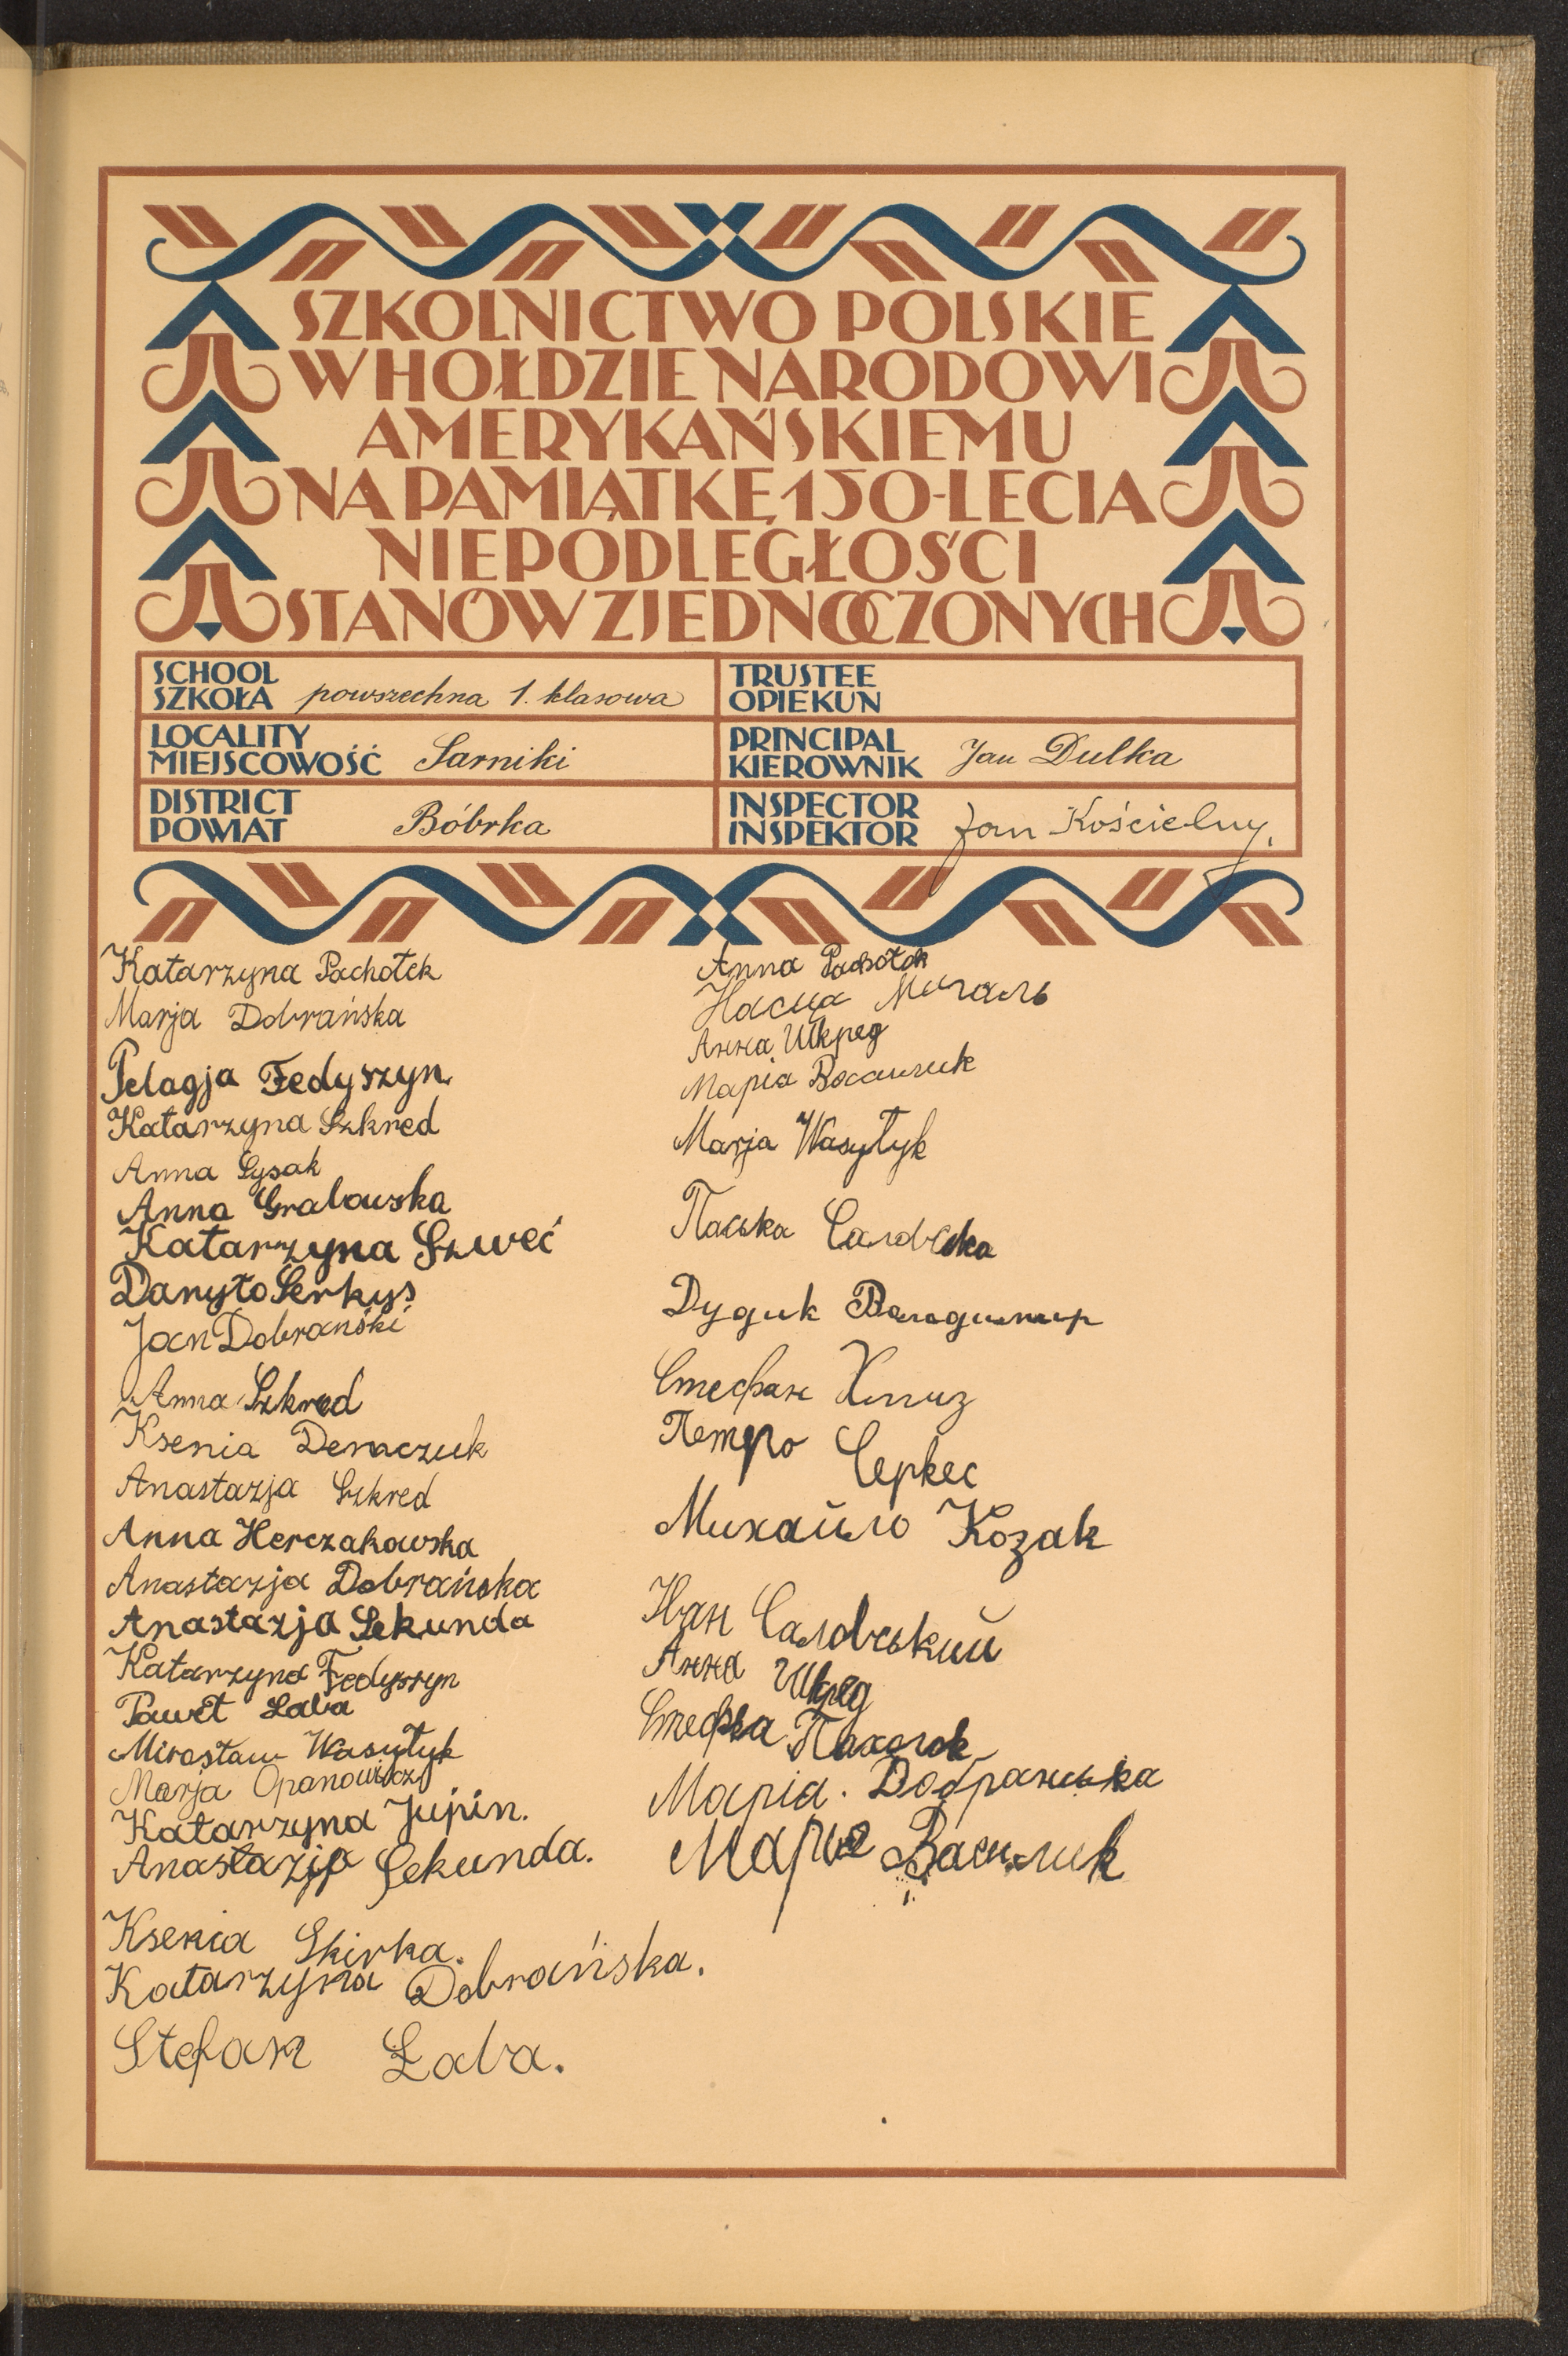 SZKOLNICTWO POLSKIE
W HOŁDZIE NARODOWI
AMERYKAŃSKIEMU
NA PAMIĄTKĘ 150-LECIA
NIEPODLEGŁOŚCI
STANÓW ZJEDNOCZONYCH
SCHOOL
SZKOŁA powszechna 1. klasowa
TRUSTEE
OPIEKUN
LOCALITY
MIEJSCOWOŚĆ Sarniki
PRINCIPAL
KIEROWNIK Jan Dulka
DISTRICT
POWIAT Bóbrka
INSPECTOR
INSPEKTOR Jan Kościelny.
Katarzyna Pachołek
Marja Dobrańska
Pelagja Fedyszyn
Katarzyna Szkred
Anna Łysak
Anna Grabowska
Katarzyna Szweć
Danyło Serkys
Jan Dobrański
Anna Szkred
Ksenia Deraczuk
Anastazja Szkred
Anna Herczakowska
Anastazja Dobrańska
Anastazja Sekunda
Katarzyna Fedyszyn
Paweł Łaba
Mirosław Wasyłyk
Marja Opanowicz
Katarzyna Jupin.
Anastazja Sekunda.
Ksenia Skirka.
Katarzyna Dobrańska.
Stefan Łaba.
Anna Pachołok
Насця
Анна Шкред
Марія
Marja Wasyłyk
Паська
Дудик Володимир
Стефан
Петро Серкес
Михайло Козак
Іван Саловський
Анна Шкред
Стефка Пахолок
Марія. Добранська
Марія Василик